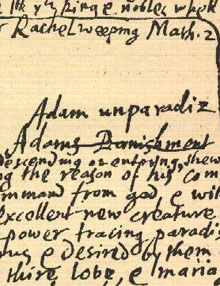 kinge nobles
Rachel weeping Math. 2
Adam unparadiz
Adams Banishment
descending or entring, shew
g the reason of his com
mmand from god e
excellent new creature
power tracing paradi
e desired by them
thire lobe, e maria